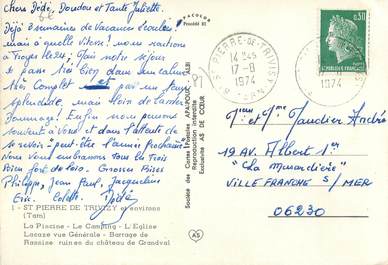 Chers Dédé, Doudou et Tante Juliette.
Déjà 2 semaines de Vacances écoulées!
mais à quelle vitesse! nous rentrons
à Troyes le 24, Mais notre séjour
se passe très bien dans un calme
très complet mais pas un temps
splendide, mais loin de
Dommage! Enfin nous pensons
souvent à Vous et dans l'attente de
se revoir "peut-être l'année prochaine"
Nous Vous embrassons tous les Trois
Bien fort de loin. Grosses Bises
Philippe, Jean Paul, Jacqueline
Colette
1 - ST PIERRE DE TRIVIZY et environs
(Tarn)
La Piscine - Le Camping - L'Eglise
Lacaze vue Générale - Barrage de
Rassise ruines du château de Grandval
PACOLOR
Procédé
Société des Cartes Postales APA-POUX - ALBI
Reproduction interdite
Exclusivité AS DE CŒUR
AS
ST PIERRE-DE-TRIVISY
14 H45
17-8
1974
TARN
1974
0,50
R. PUBLIQUE FRANCAISE
Mr et Mme Jandien André
19 AV. Albert 1er
"La
VILLE FRANCHE S/MER
06230